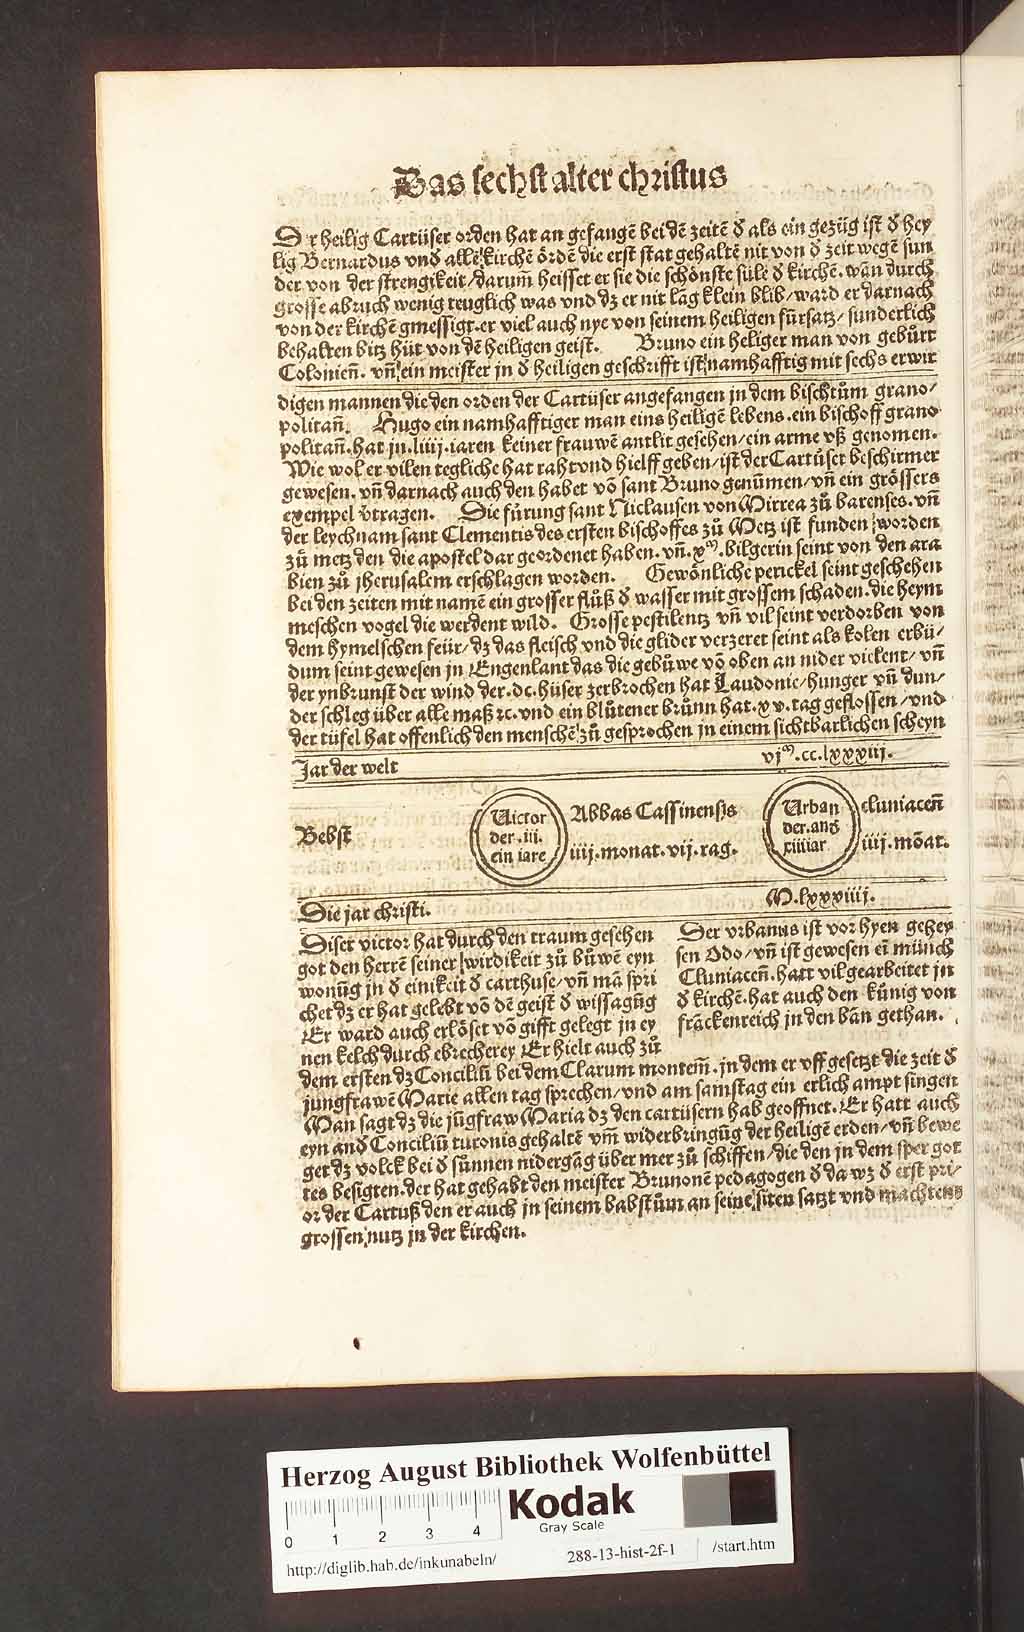 Das sechst alter christus
Der heilig Cartüser orden hat an gefangē bei dē zeitē d̕ als ein gezüg ist d̕ hey
lig Bernardus vnd allē kirchē ördē die erst stat gehaltē nit von d̕ zeit wegē sun
der von der strengikeit/darum̄ heisset er sie die schönste süle d̕ kirchē. wān durch
grosse abruch wenig teuglich was vnd dz er nit lāg klein blib/ward er darnach
von der kirchē gmessigt.er viel auch nye von seinem heiligen fürsatz/sunderlich
behalten bitz hüt von dē heiligen geist. Bruno ein heliger man von gebůrt
Colonien̄. vn̄ ein meister jn d̕ heiligen geschrifft ist namhafftig mit sechs erwir
digen mannen die den orden der Cartüser angefangen jn dem bischtům grano/
politan̄. Hugo ein namhafftiger man eins heiligē lebens.ein bischoff grano
politan̄.hat jn.liiij.iaren keiner frauwē antlit gesehen/ein arme vß genomen.
Wie wol er vilen tegliche hat raht vnd hielff geben/ist der Cartüser beschirmer
gewesen.vn̄ darnach auch den habet vō sant Bruno genūmen/vn̄ ein grössers
exempel v̕tragen. Die fůrung sant Niclausen von Mirrea zů barenses.vn̄
der leychnam sant Clementis des ersten bischoffes zů Metz ist funden worden
zů metz den die apostel dar geordenet haben.vn̄.xm.bilgerin seint von den ara
bien zů jherusalem erschlagen worden. Gewönliche perickel seint geschehen
bei den zeiten mit namē ein grosser flůß d̕ wasser mit grossem schaden.die heym
meschen vogel die werdent wild. Grosse pestilentz vn̄ vil seint verdorben von
dem hymelschen feür/dz das fleisch vnd die glider verzeret seint als kolen erbü/
dum seint gewesen jn Engenlant das die gebůwe vō oben an nider vielent/vn̄
der ynbrunst der wind der.dc.hüser zerbrochen hat Laudonie/hunger vn̄ dun/
der schleg über alle maß ꝛc.vnd ein blůtener brůnn hat.xv.tag geflossen/vnd
der tüfel hat offenlich den menschē zů gesprochen jn einem sichtbarlichen scheyn
Jar der welt vjm.cc.lxxxiii.
Bebst
Victor
der.iii.
ein iare
Abbas Cassinensis
iiij.monat.vij.tag.
Vrban
der.and̕
xiiiiar
cluniacen̄
iiij.mōat.
Die jar christi. M.lxxxiiij.
Diser victor hat durch den traum gesehen
got den herrē seiner wirdikeit zů büwē eyn
wonūg jn d̕ einikeit d̕ carthuse/vn̄ mā spri
chet dz er hat gelebt vō dē geist d̕ wissagūg
Er ward auch erlöset vō gifft gelegt jn ey
nen kelch durch ebrecherey Er hielt auch zů
dem ersten dz Conciliū bei dem Clarum montem̄.jn dem er vff gesetzt die zeit d̕
jungfrawē Marie allen tag sprechen/vnd am samstag ein erlich ampt singen
Man sagt dz die jūgfraw Maria dz den cartüsern hab geoffnet.Er hatt auch
eyn and̕ Conciliū turonis gehaltē vm̄ widerbringūg der heiligē erden/vn̄ bewe
get dz volck bei d̕ sůnnen nidergāg über mer zů schiffen/die den jn dem sper got
tes besigten.der hat gehabt den meister Brunonē pedagogen d̕ da wz d̕ erst pri/
or der Cartuß den er auch jn seinem babstům an seine siten satzt vnd machtens
grossen nutz jn der kirchen.
Der vrbanus ist vor hyen gehey
sen Odo/vn̄ ist gewesen eī münch
Cluniacen̄.hatt vil gearbeitet jn
d̕ kirchē.hat auch den kůnig von
frāckenreich jn den ban gethan.
Herzog August Bibliothek Wolfenbüttel
0 1 2 3 4
Kodak
Gray Scale
http://diglib.hab.de/inkunabeln/ 288-13-hist-2f-1 /start.htm